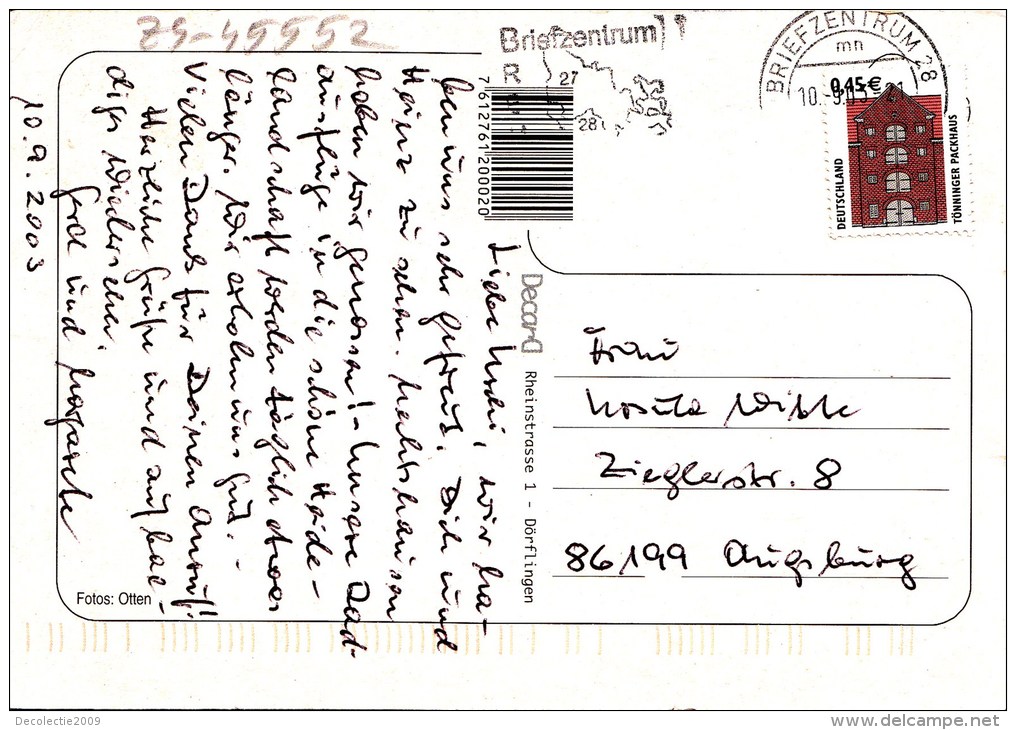 Z9-45552
Briefzentrum
R
27
28
BRIEFZENTRUM 28
mn
10.-9.03-21
0,45 €
DEUTSCHLAND
TÖNNINGER PACKHAUS
7 612761 200020
10.9.2003
Liebe Uschi, wir ha-
ben uns sehr gefreut, Dich und
Heinz zu sehen.
haben wir genossen! - Unsere Rad-
ausflüge in die schöne Heide-
landschaft werden täglich etwas
länger. Wir erholen uns gut. -
Vielen Dank für Deinen Anruf!
Herzliche Grüße und auf bal-
diges Wiedersehen.
Gerd und Margarete
Decard
Rheinstrasse 1 - Dörflingen
Frau
Ursula
Zieglerstr. 8
86199 Augsburg
Fotos: Otten
Decolectie2009
www.delcampe.net